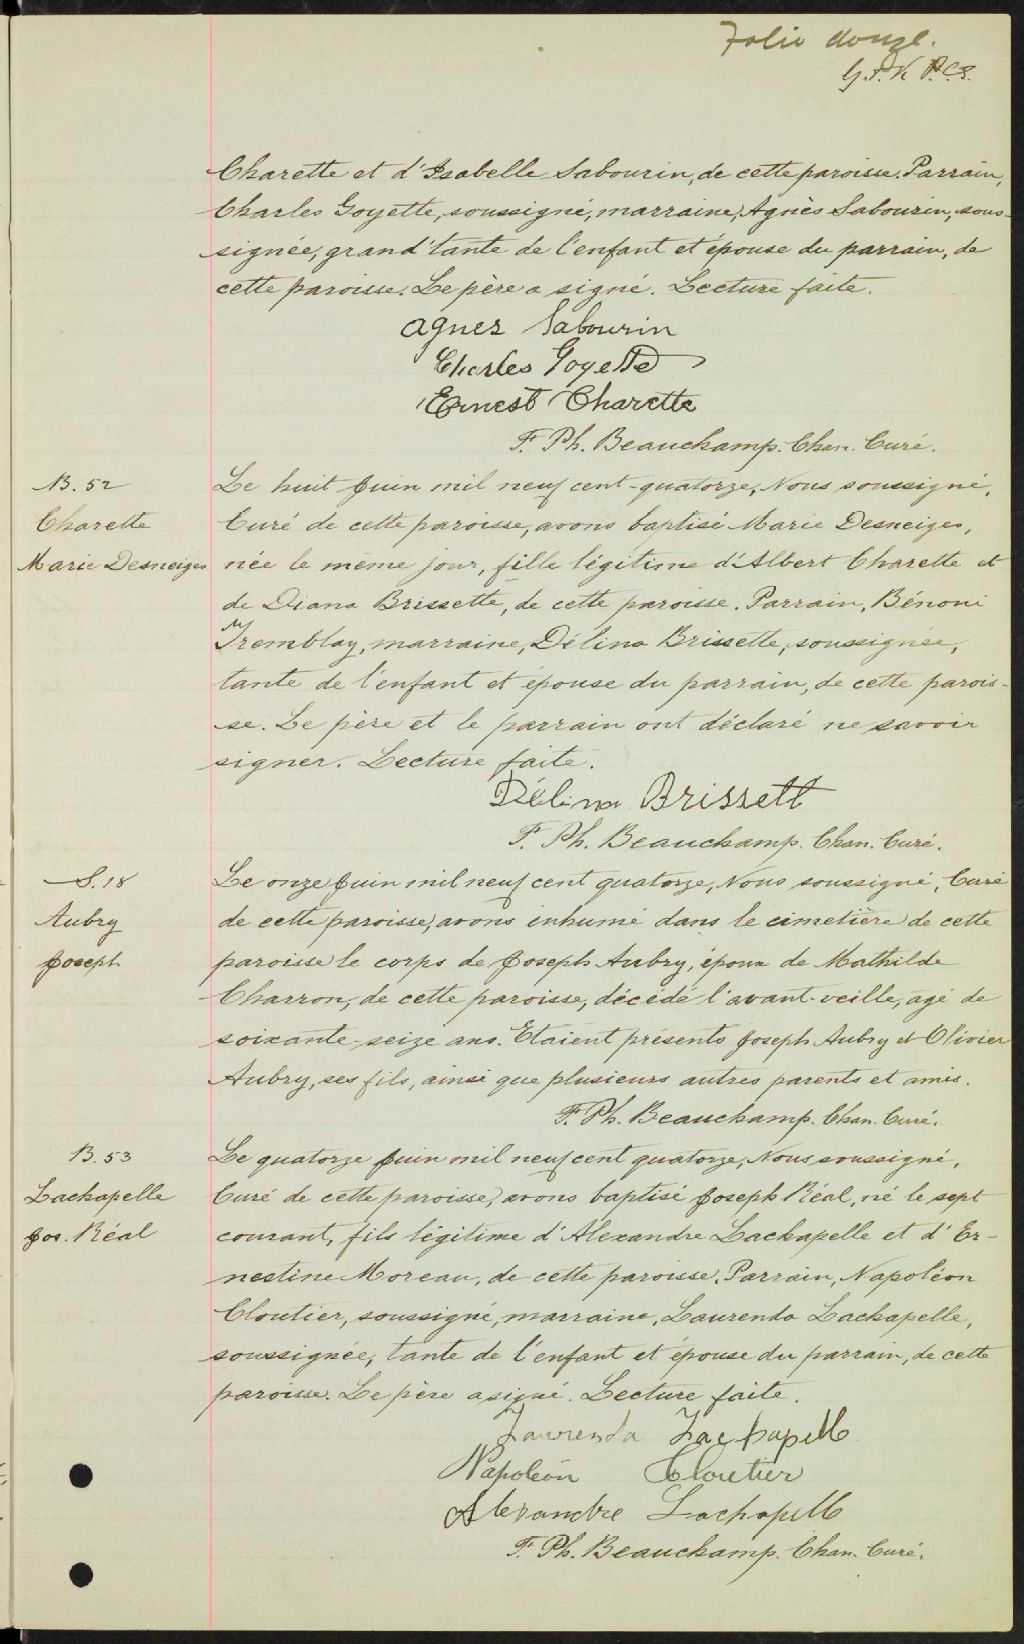 Folio douze.
G.P.K P.C.S.
Charette et d'Isabelle Sabourin, de cette paroisse. Parrain,
Charles Goyette, soussigné, marraine, Agnès Sabourin, sous-
signée, grand'tante de l'enfant et épouse du parrain, de
cette paroisse. Le père a signé. Lecture faite.
Agnes Sabourin
Charles Goyette
Ernest Charette
F. Ph. Beauchamp. Chan. Curé.
B. 52
Charette
Marie Desneiges
Le huit Juin mil neuf cent-quatorze, Nous soussigné,
Curé de cette paroisse, avons baptisé Marie Desneiges,
née le même jour, fille légitime d'Albert Charette et
de Diana Brissette, de cette paroisse. Parrain, Bénoni
Tremblay, marraine, Délina Brissette, soussignée,
tante de l'enfant et épouse du parrain, de cette parois-
se. Le père et le parrain ont déclaré ne savoir
signer. Lecture faite.
Délina Brissett
F. Ph. Beauchamp. Chan. Curé.
S. 18
Aubry
Joseph
Le onze Juin mil neuf cent quatorze, Nous soussigné, Curé
de cette paroisse, avons inhumé dans le cimetière de cette
paroisse le corps de Joseph Aubry, époux de Mathilde
Charron, de cette paroisse, décédé l'avant-veille, agé de
soixante-seize ans. Etaient présents Joseph Aubry et Olivier
Aubry, ses fils, ainsi que plusieurs autres parents et amis.
F. Ph. Beauchamp. Chan. Curé.
B. 53
Lachapelle
Jos. Réal
Le quatorze Juin mil neuf cent quatorze, Nous soussigné,
Curé de cette paroisse, avons baptisé Joseph Réal, né le sept
courant, fils légitime d'Alexandre Lachapelle et d'Er-
nestine Moreau, de cette paroisse. Parrain, Napoléon
Cloutier, soussigné, marraine, Laurenda Lachapelle,
soussignée, tante de l'enfant et épouse du parrain, de cette
paroisse. Le père a signé. Lecture faite.
Laurenda Lachapelle
Napoléon Cloutier
Alexandre Lachapelle
F. Ph. Beauchamp. Chan. Curé.